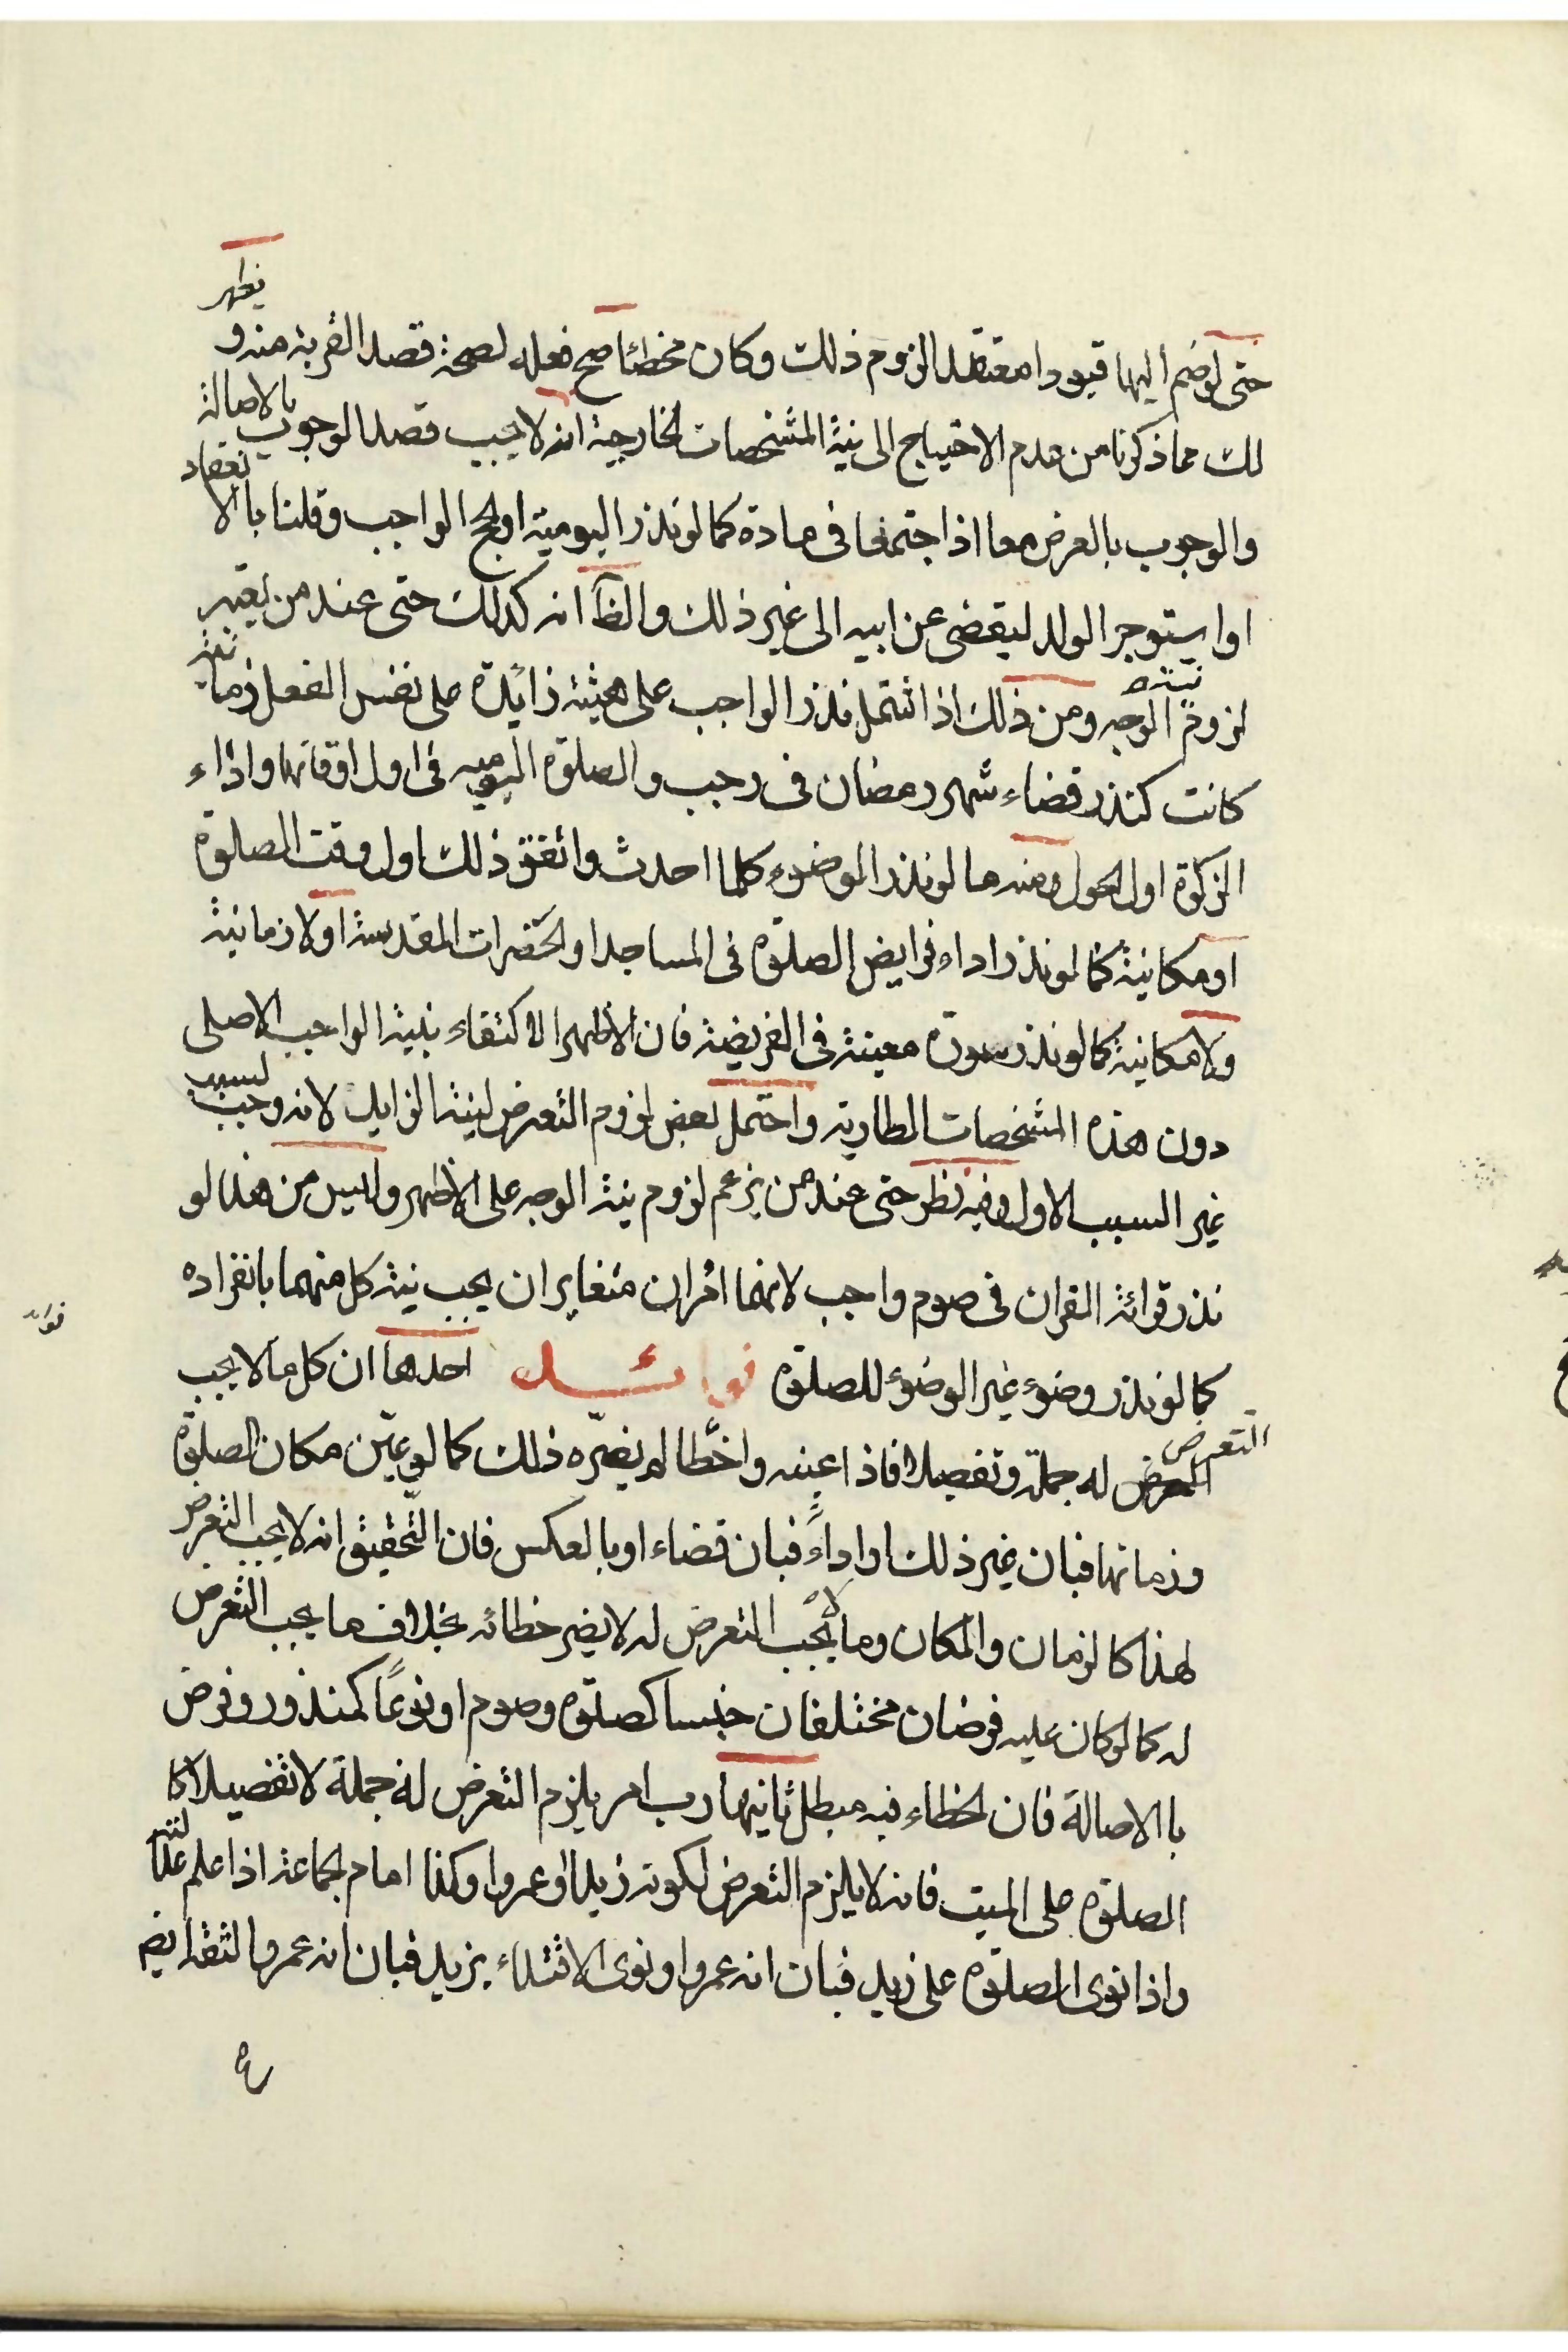 حتى لو ضم اليها قيودا معتقدا لزوم ذلك وكان مخطئا صح فعله لصحة قصد القربة منه و يظهر
لك مما ذكرنا من عدم الاحتياج الى نية المشخصات الخارجية انه لا يجب قصد الوجوب بالاصالة
والوجوب بالعرض معا اذا اجتمعا فى مادة كما لو نذر اليومية او الحج الواجب وقلنا باالانعقاد
او استوجر الولد ليقضى عن ابيه الى غير ذلك والظآ انه كذلك حتى عند من يعتبر
لزوم نية الوجه ومن ذلك اذا اشتمل نذر الواجب على هيئة زائدة على نفس الفعل زمانية
كانت كنذر قضاء شهر رمضان فى رجب والصلوة اليومية فى اول اوقاتها واداء
الزكوة اول الحول ومنه ما لو نذر الوضوء كلما احدث واتفق ذلك اول وقت الصلوة
او مكانية كما لو نذر اداء فرايض الصلوة فى المساجد او الحضرات المقدسة او لا زمانية
ولا مكانية كما لو نذر سورة معينة فى الفريضة فان الاظهر الاكتفاء بنية الواجب الاصلى
دون هذه المشخصات الطارية واحتمل بعض لزوم التعرض لنية الزايل لانه وجب لسبب
غير السبب الاول وفيه نظر حتى عند من يزعم لزوم نية الوجه على الاظهر وليس من هذا لو
نذر قرائة القران فى صوم واجب لانهما امران متغايران يجب نية كل منهما بانفراده
كما لو نذر وضوء غير الوضوء للصلوة فوائد احدها ان كل ما لا يجب
التعرض له جملة وتفصيلا فاذا عينه واخطا لم يضره ذلك كما لو عين مكان الصلوة
وزمانها فبان غير ذلك او اداءً فبان قضاء او بالعكس فان التحقيق انه لا يجب التعرض
لهذا كالزمان والمكان وما لا يجب التعرض له لا يضر خطائه بخلاف ما يجب التعرض
له كما لو كان عليه فرضان مختلفان جنسا كصلوة وصوم او نوعًا كمنذور وفرض
باالاصالة فان الخطاء فيه مبطل ثانيها رب امر يلزم التعرض له جملة لا تفصيلا كا
الصلوة على الميت فانه لا يلزم التعرض لكونه زيدا او عمروا وكذا امام الجماعة اذا علم عدالته
واذا نوى الصلوة على زيد فبان انه عمروا ونوى الاقتداء بزيد فبان انه عمرو الثقة ايضا
فوايد